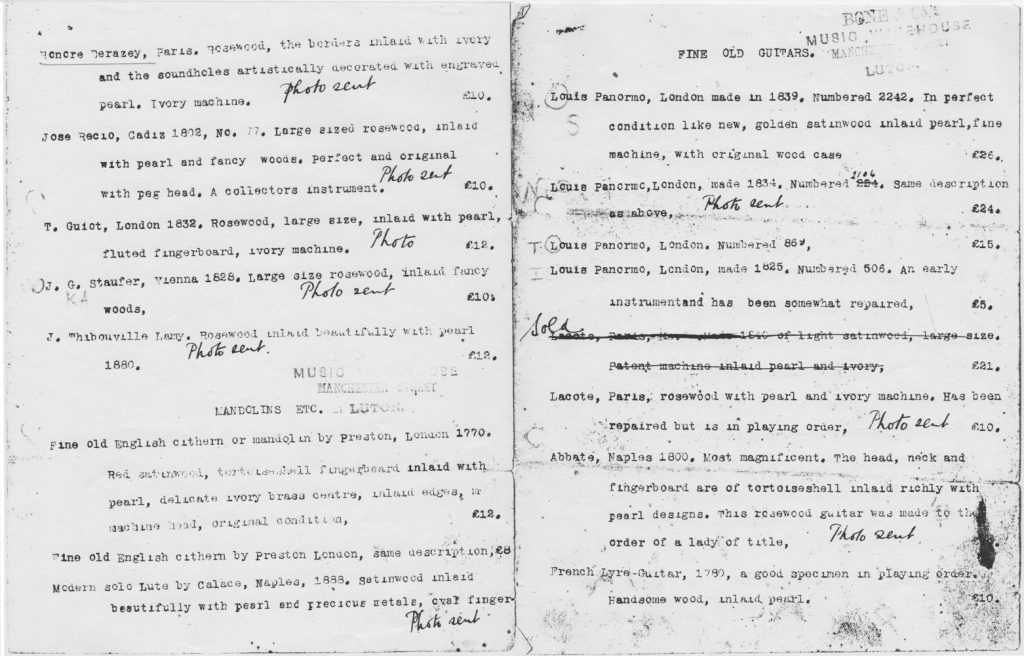 Honore Derazey, Paris. Rosewood, the borders inlaid with ivory
and the soundholes artistically decorated with engraved
pearl. Ivory machine. Photo sent £10.
Jose Recio, Cadiz 1802, No. 77. Large sized rosewood, inlaid
with pearl and fancy woods. Perfect and original
with peg head. A collectors instrument. Photo sent £10.
T. Guiot, London 1832. Rosewood, large size, inlaid with pearl,
fluted fingerboard, ivory machine. Photo £12.
J. G. Staufer, Vienna 1828. Large size rosewood, inlaid fancy
woods, Photo sent £10.
J. Thibouville Lamy. Rosewood inlaid beautifully with pearl
1880. Photo sent. £12.
MUSIC WAREHOUSE
MANCHESTER STREET
LUTON.
MANDOLINS ETC.
Fine old English cithern or mandolin by Preston, London 1770.
Red satinwood, tortoiseshell fingerboard inlaid with
pearl, delicate ivory brass centre, inlaid edges,
machine head, original condition, £12.
Fine old English cithern by Preston London, same description, £8
Modern solo Lute by Calace, Naples, 1888. Satinwood inlaid
beautifully with pearl and precious metals, oval finger
Photo sent
BONE & CO
MUSIC WAREHOUSE
MANCHESTER STREET
LUTON.
FINE OLD GUITARS.
Louis Panormo, London made in 1839. Numbered 2242. In perfect
condition like new, golden satinwood inlaid pearl, fine
machine, with original wood case £26.
Louis Panormo, London, made 1834. Numbered 2106 224. Same description
as above, Photo sent £24.
Louis Panormo, London. Numbered 869, £15.
Louis Panormo, London, made 1825. Numbered 506. An early
instrumentand has been somewhat repaired, £5.
Sold
Lacote, Paris, Made 1840 of light satinwood, large size.
Patent machine inlaid pearl and ivory, £21.
Lacote, Paris, rosewood with pearl and ivory machine. Has been
repaired but is in playing order, Photo sent £10.
Abbate, Naples 1800. Most magnificent. The head, neck and
fingerboard are of tortoiseshell inlaid richly with
pearl designs. This rosewood guitar was made to the
order of a lady of title, Photo sent
French Lyre-Guitar, 1780, a good specimen in playing order.
Handsome wood, inlaid pearl. £10.